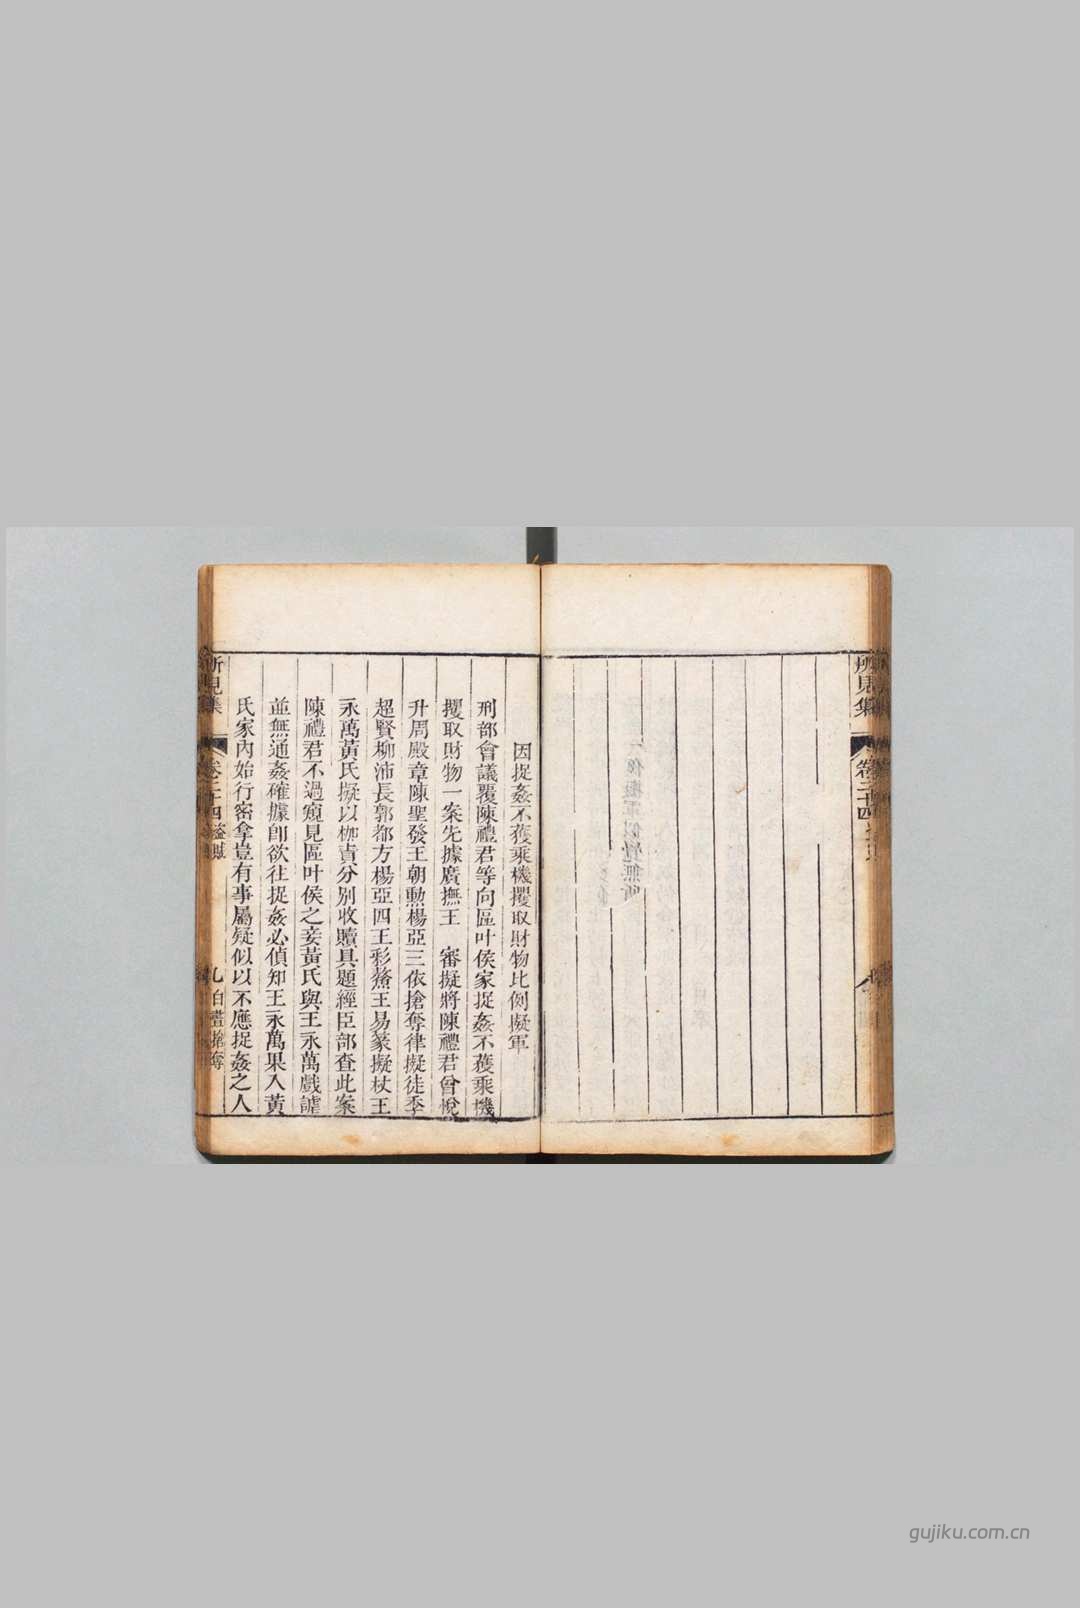 所見集
卷二十四
因捉姦不獲乘機攫取財物比例擬軍
刑部會議覆陳禮君等向區叶侯家捉姦不獲乘機
攫取財物一案先據廣撫王　審擬將陳禮君曾悅
升周殿章陳聖發王朝勲楊亞三依搶奪律擬徒季
超賢柳沛長郭都方楊亞四王彩鰲王易篆擬杖王
永萬黃氏擬以枷責分別收贖具題經臣部查此案
陳禮君不過窺見區叶侯之妾黃氏與王永萬戲謔
並無通姦確據卽欲往捉姦必偵知王永萬果入黃
氏家內始行密拿豈有事屬疑似以不應捉姦之人
所見集
卷二十四
白晝搶奪
gujiku.com.cn